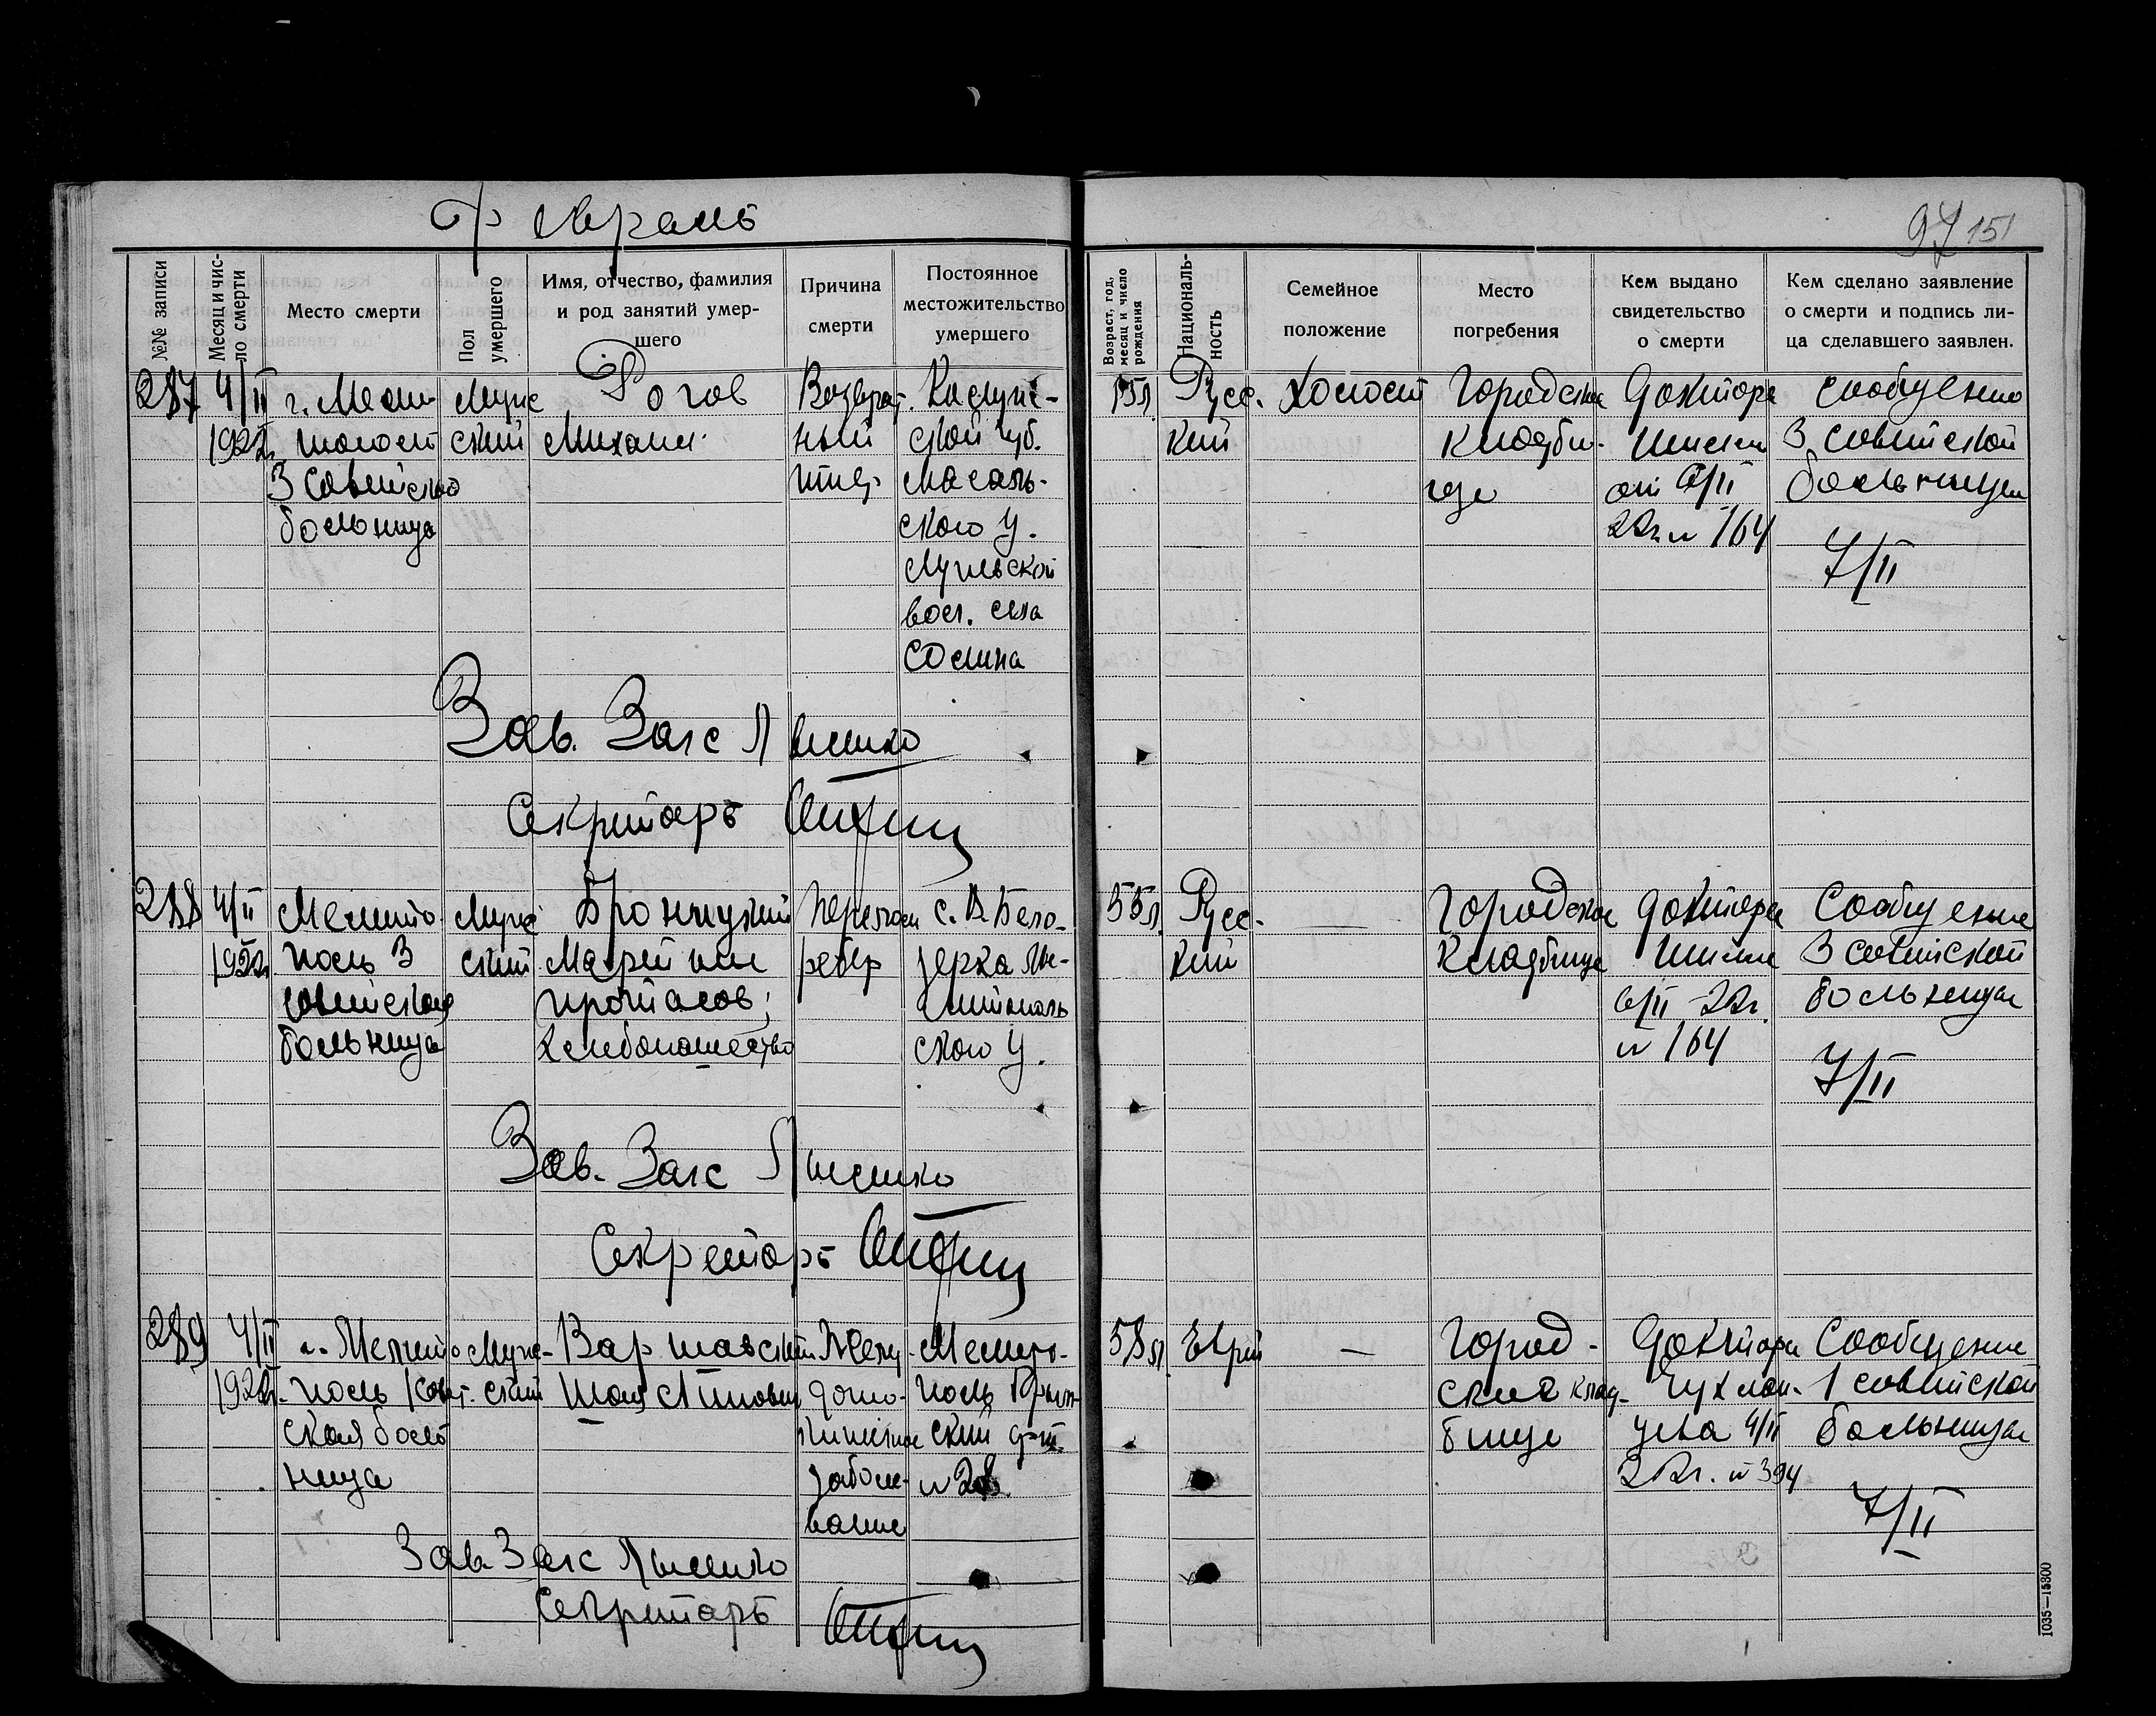 Февраль
97 151
№№ записи
Месяц и чис-
ло смерти
Место смерти
Пол
умершего
Имя, отчество, фамилия
и род занятий умер-
шего
Причина
смерти
Постоянное
местожительство
умершего
Возраст, год,
месяц и число
рождения
Националь-
ность
Семейное
положение
Место
погребения
Кем выдано
свидетельство
о смерти
Кем сделано заявление
о смерти и подпись ли-
ца сделавшего заявлен.
287
4/II
1922г.
г. Мели-
тополь
3 Советской
больница
Муж-
ский
Рогов
Михаил
Возврат-
ный
тиф
Калуж-
ской губ.
Масаль-
ского у.
вол. села
15л.
Русс-
кий
холост
Городское
кладби-
ще
Доктора
от 6/II
22г. № 164
Сообщение
3 советской
больницы
7/II
Зав. Загс
Секретарь
288
4/II
1922г.
Мелито-
поль 3
советская
больница
Муж-
ский
Бронницкий
хлебопашество
перелом
ребер
с. В. Бело-
зерка Ме-
литополь
ского у.
55л.
Русс-
кий
—
Городское
кладбище
Доктора
6/II 22г.
№ 164
Сообщение
3 советской
больницы
7/II
Зав. Загс
Секретарь
289
4/II
1922г.
г. Мелито-
поль 1 Совет-
ская боль
ница
Муж-
ский
Варшавский
Желу-
дочно-
кишечное
заболе-
вание
Мелито-
поль
№ 28
58л.
Еврей
—
Город-
ское клад-
бище
Доктора
4/II
22г. № 394
Сообщение
1 советской
больницы
7/II
Зав. Загс
Секретарь
1035—15300